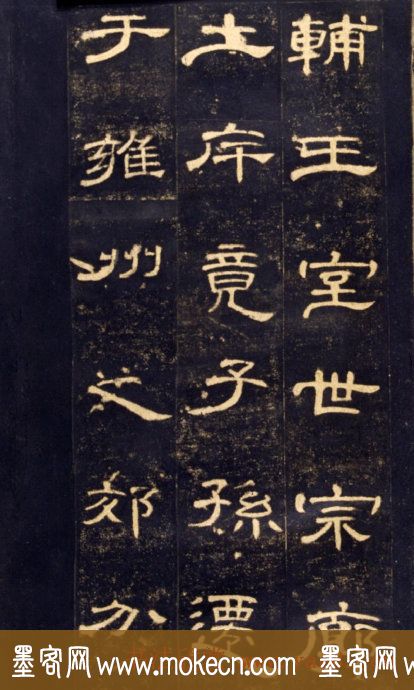 輔王室世宗廓
土斥竟子孫遷
于雍州之郊分
墨客网www.mokecn.com 墨客网www